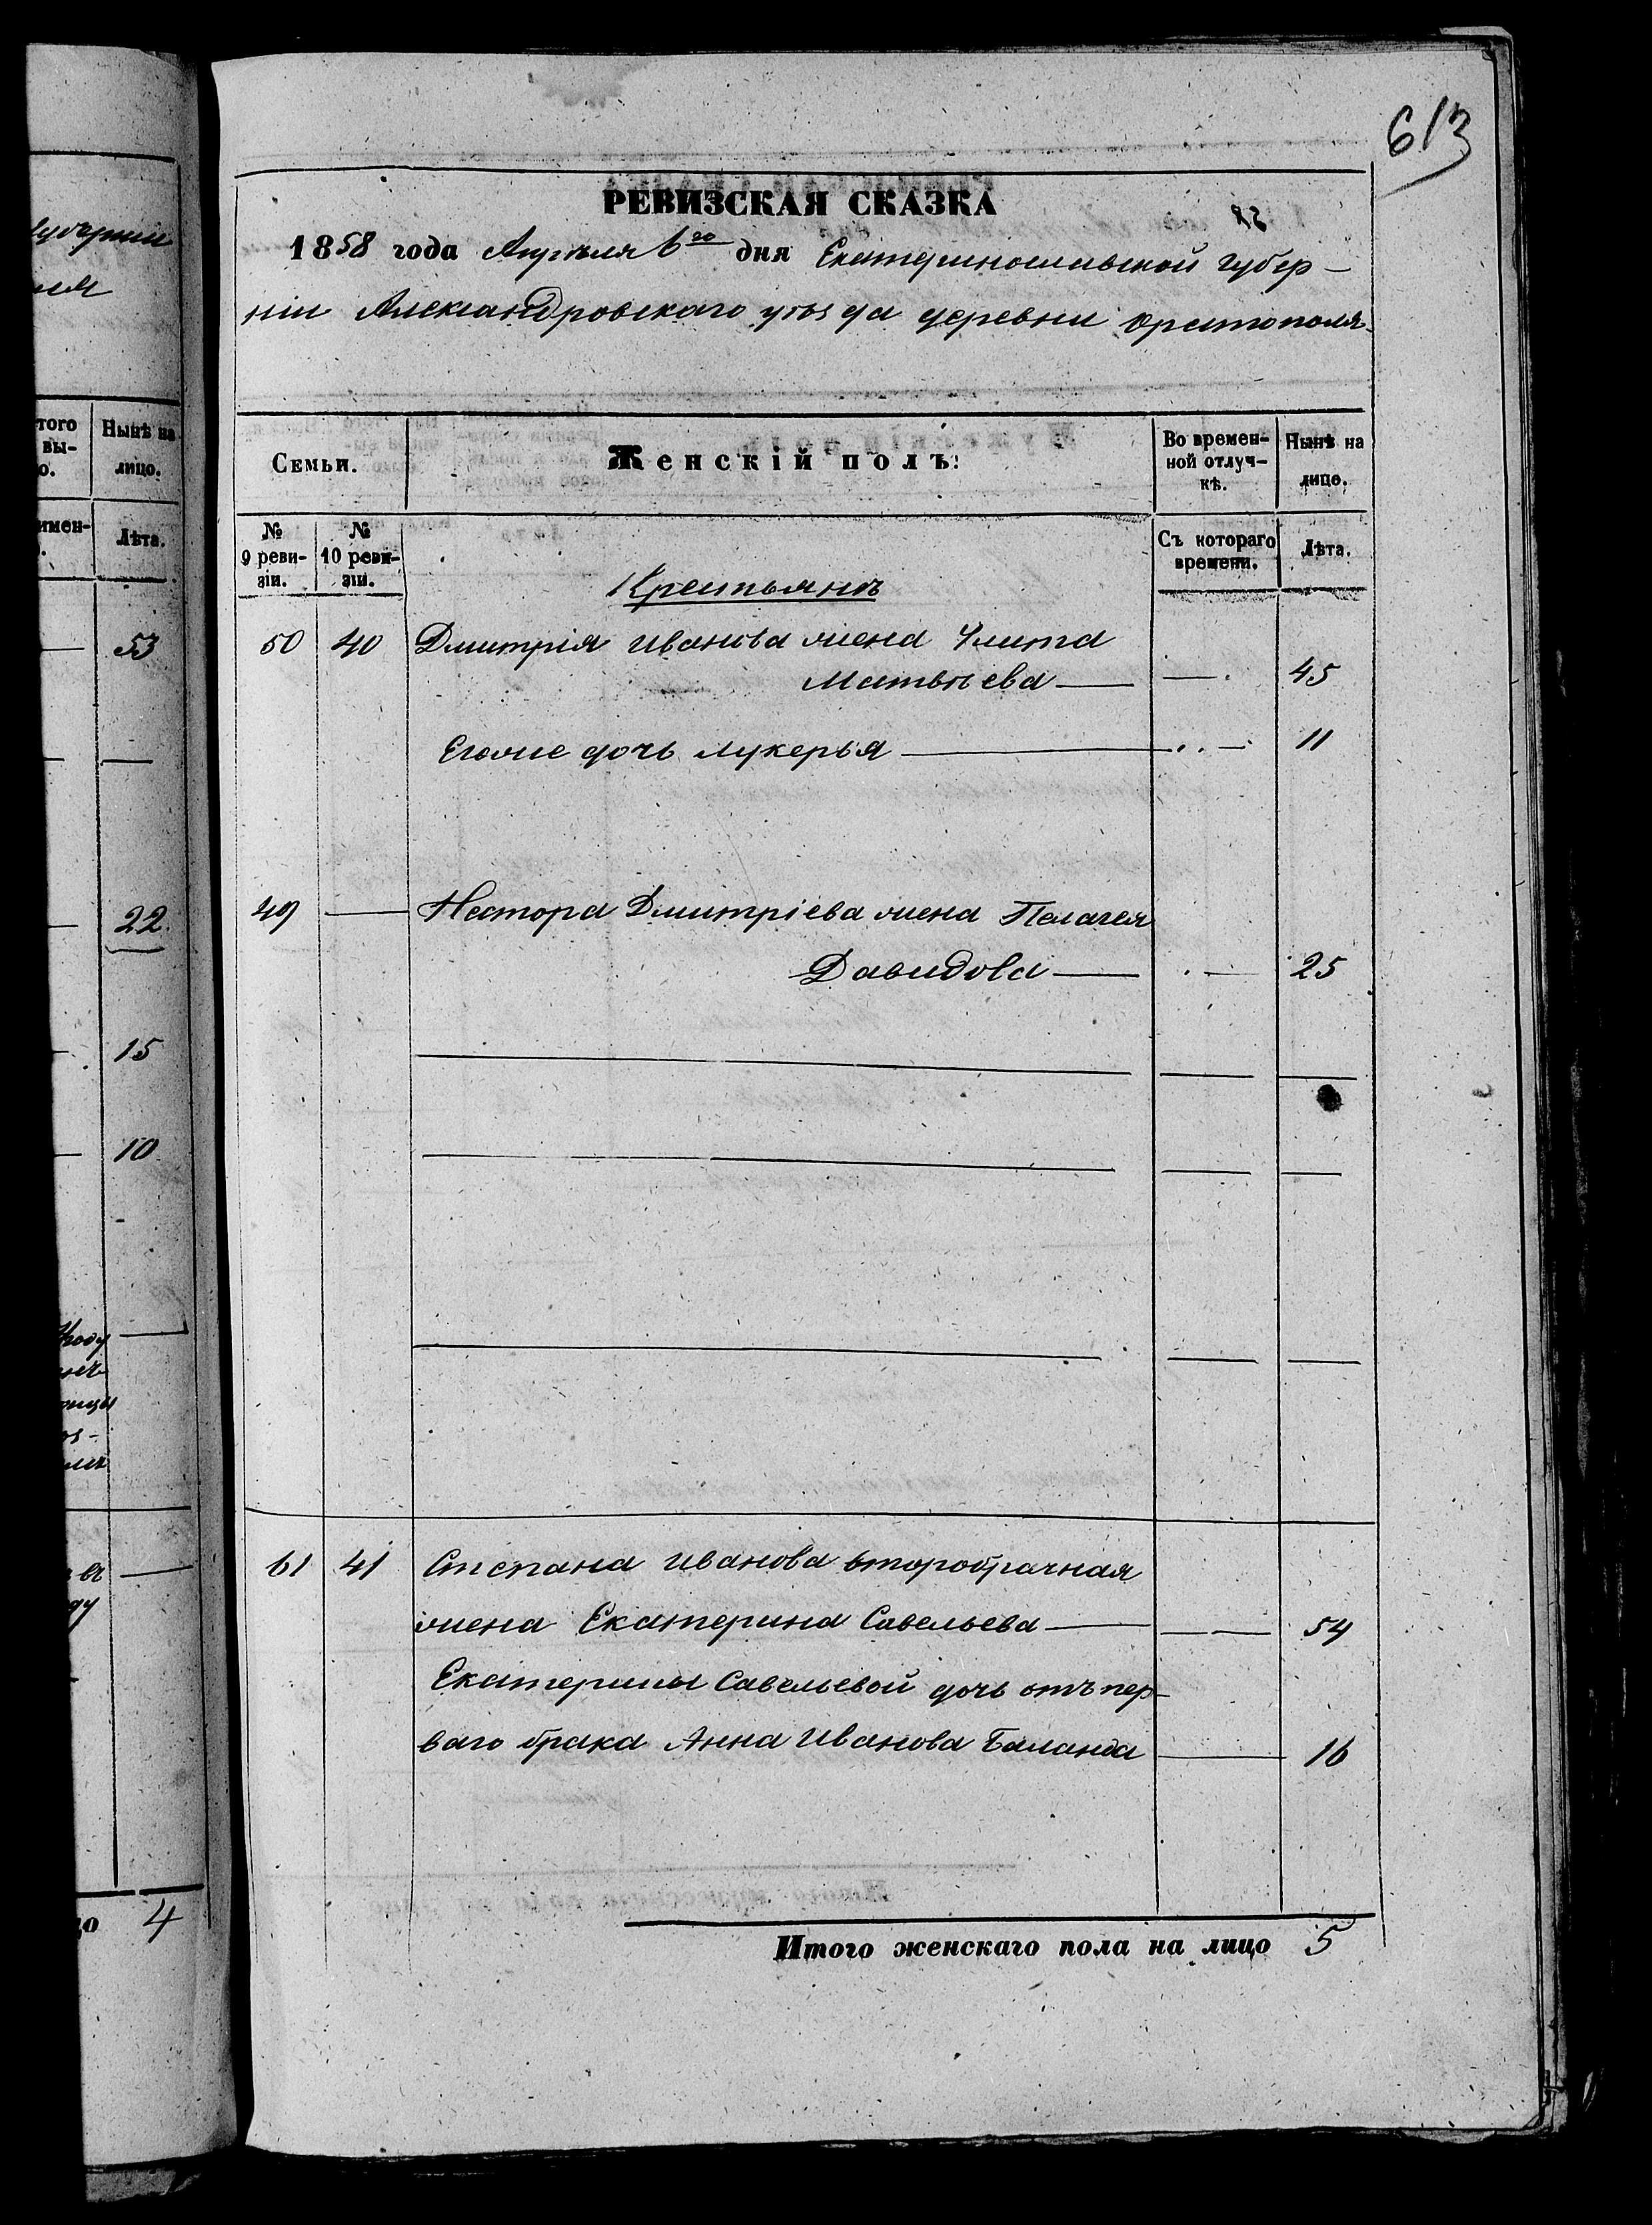 613
РЕВИЗСКАЯ СКАЗКА
1858 года Апрѣля 6го дня Екатеринославской губер-
ніи Александровскаго уѣзда деревни Орестополя
Семьи.
Женскій полъ:
Во времен-
ной отлуч-
кѣ.
Нынѣ на
лице.
№
9 реви-
зіи.
№
10 реви-
зіи.
Съ котораго
времени.
Лѣта.
Крестьянъ
50 40 Дмитрія Иванова жена Улита
Матвѣева — — 45
Егоже дочь Лукерья — — 11
49 — Нестора Дмитріева жена Пелагея
Давидова — — 25
61 41 Степана Иванова второбрачная
жена Екатерина Савельева — — 54
Екатерины Савельевой дочь отъ пер-
ваго брака Анна Иванова Баланда — 16
Итого женскаго пола на лицо 5
губерніи
того
вы-
о.
Нынѣ на
лицо.
имен-
Лѣта.
53
22
15
10
4